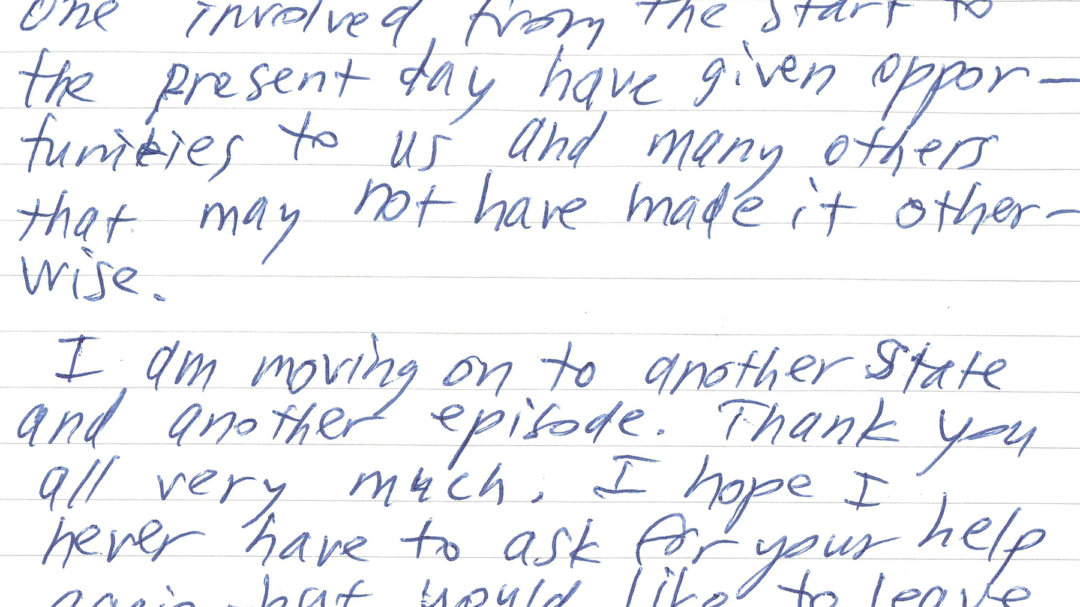 one involved from the start to
the present day have given oppor-
tunities to us and many others
that may not have made it other-
wise.
I am moving on to another State
and another episode. Thank you
all very much. I hope I
never have to ask for your help
again but would like to leave